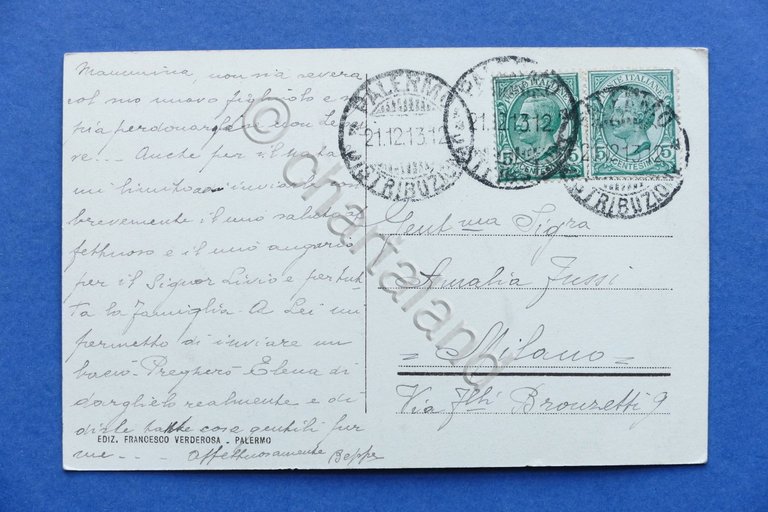 Mammina, non sia severa
col suo nuovo figliolo e
sia perdonar
ve... Anche per il Natale
mi limito ad inviar
brevemente il mio saluto af
fettuoso e il mio augurio
per il Signor Livio e per tut
ta la famiglia. A Lei mi
permetto di inviare un
bacio. Pregherò Elena di
darglielo realmente e di
dirle tante cose gentili per
me... affettuosamente Beppe
EDIZ. FRANCESCO VERDEROSA - PALERMO
PALERMO
21.12.13.12
DISTRIBUZIO
PALERMO
21.12.13.12
DISTRIBUZIO
POSTE ITALIANE
5 CENTESIMI 5
Gent.ma Sig.ra
Amalia Fussi
= Milano =
Via F.lli Bronzetti 9
© chartaland